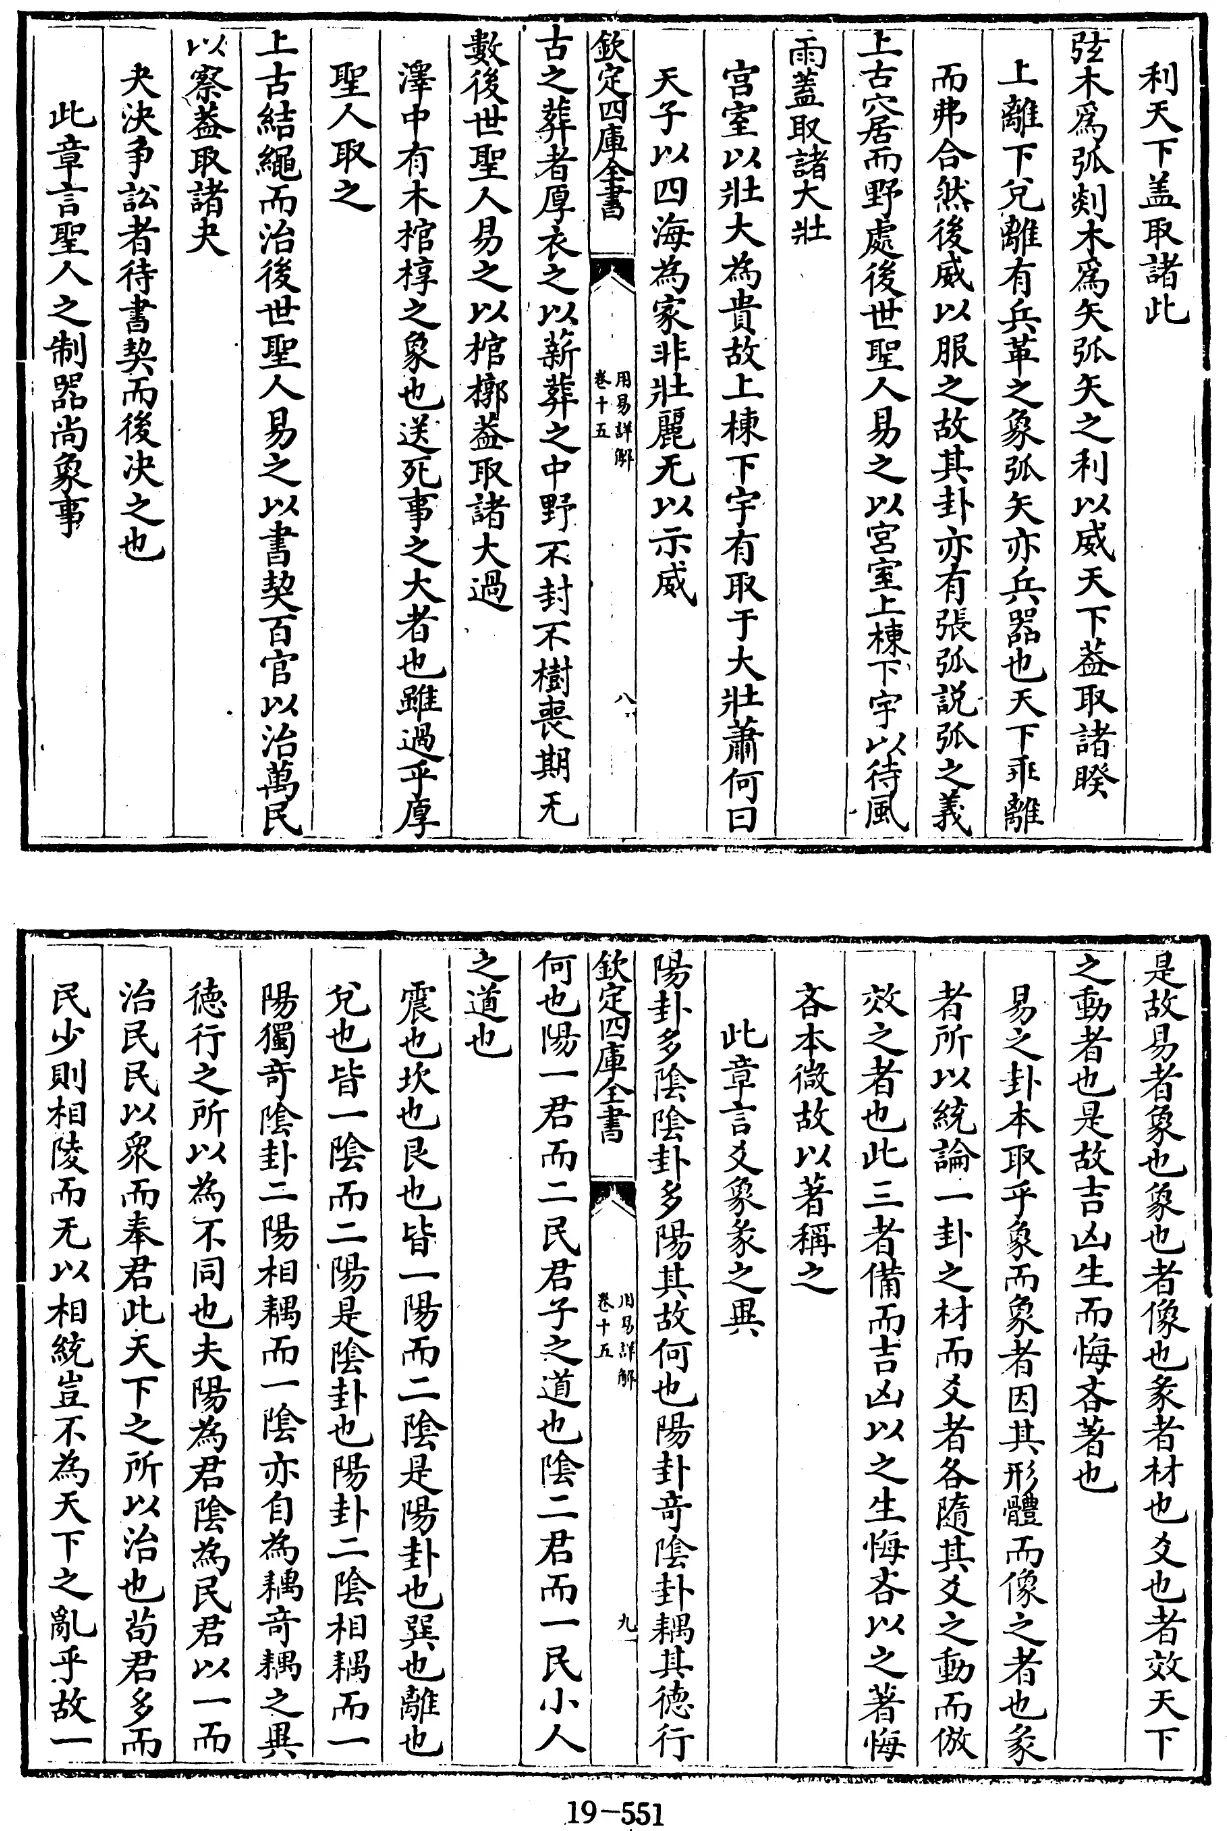 利天下盖取諸此
弦木為弧剡木為矢弧矢之利以威天下葢取諸睽
上離下兌離有兵革之象弧矢亦兵器也天下乖離
而弗合然後威以服之故其卦亦有張弧説弧之義
上古穴居而野處後世聖人易之以宮室上棟下宇以待風
雨蓋取諸大壯
宮室以壯大為貴故上棟下宇有取于大壯蕭何曰
天子以四海為家非壯麗无以示威
欽定四庫全書
用易詳解
卷十五
八
古之葬者厚衣之以薪葬之中野不封不樹喪期无
數後世聖人易之以棺槨葢取諸大過
澤中有木棺椁之象也送死事之大者也雖過乎厚
聖人取之
上古結繩而治後世聖人易之以書契百官以治萬民
以察葢取諸夬
夬決爭訟者待書契而後決之也
此章言聖人之制器尚象事
是故易者象也象也者像也彖者材也爻也者效天下
之動者也是故吉凶生而悔吝著也
易之卦本取乎象而象者因其形體而像之者也彖
者所以統論一卦之材而爻者各隨其爻之動而倣
效之者也此三者備而吉凶以之生悔吝以之著悔
吝本微故以著稱之
此章言爻象彖之異
陽卦多陰陰卦多陽其故何也陽卦奇陰卦耦其德行
欽定四庫全書
用易詳解
卷十五
九
何也陽一君而二民君子之道也陰二君而一民小人
之道也
震也坎也艮也皆一陽而二陰是陽卦也巽也離也
兌也皆一陰而二陽是陰卦也陽卦二陰相耦而一
陽獨奇陰卦二陽相耦而一陰亦自為耦奇耦之異
德行之所以為不同也夫陽為君陰為民君以一而
治民民以衆而奉君此天下之所以治也茍君多而
民少則相陵而无以相統豈不為天下之亂乎故一
19-551